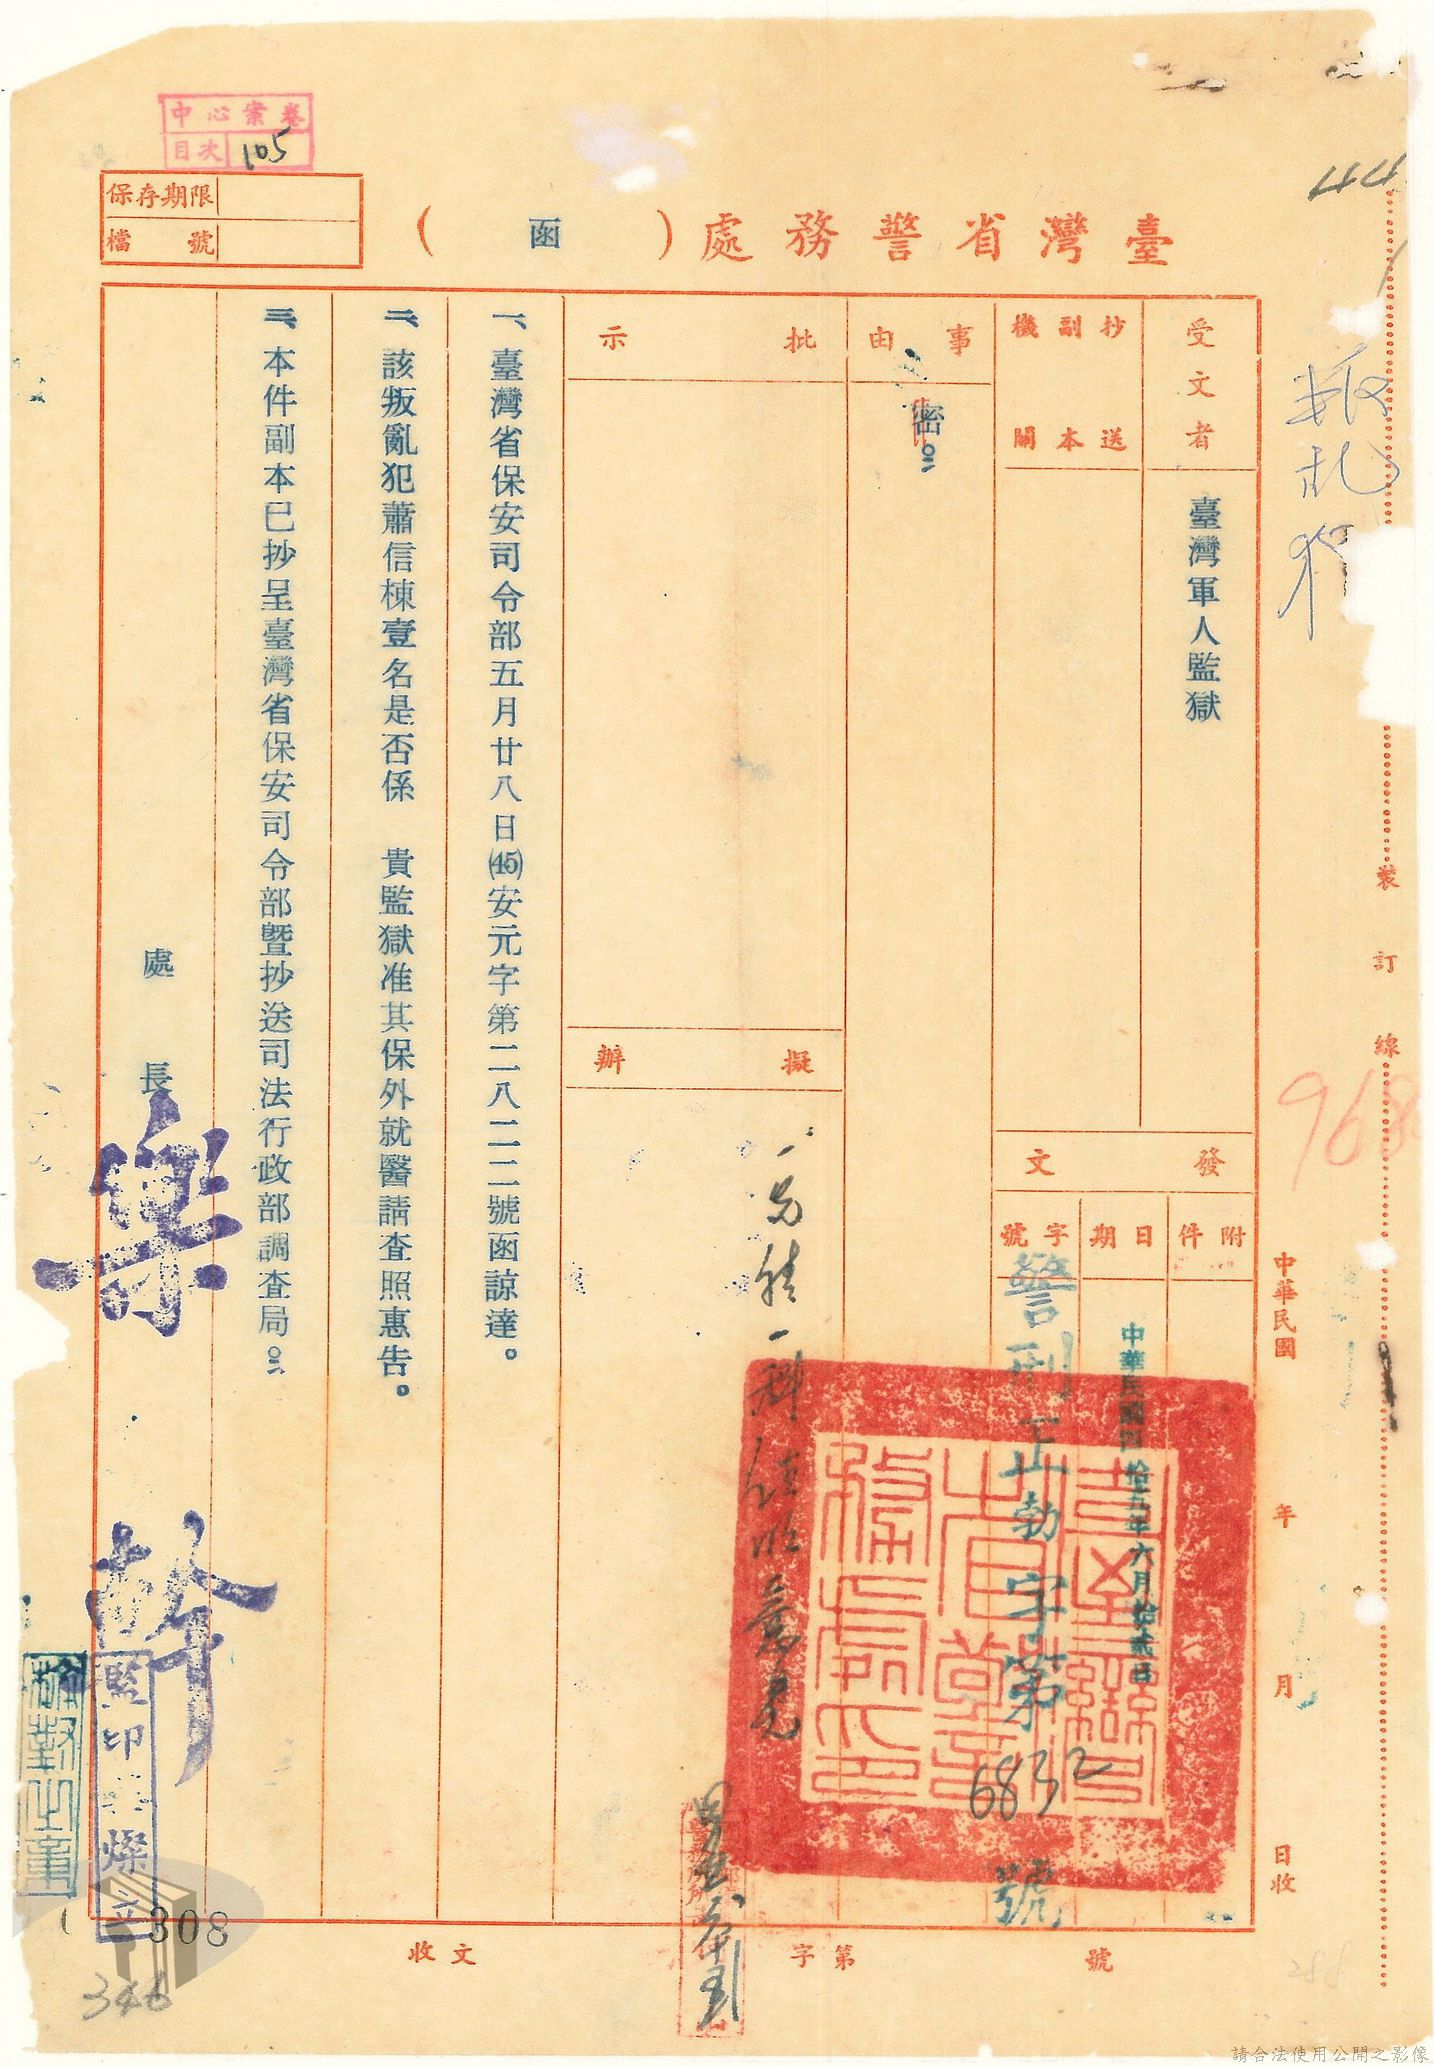 中心案卷
目次 105
保存期限
檔號
臺灣省警務處（函）
受文者
臺灣軍人監獄
抄副機
送本關
事由
密。
批示
擬辦
發文
附件
日期
中華民國四拾五年六月拾貳日
字號
警刑正勃字第6832號
一、臺灣省保安司令部五月廿八日(45)安元字第二八二二號函諒達。
二、該叛亂犯蕭信棟壹名是否係 貴監獄准其保外就醫請查照惠告。
三、本件副本已抄呈臺灣省保安司令部暨抄送司法行政部調查局。
處長 樂幹
監印
叛亂犯
裝訂線
中華民國 年 月 日收
收文 字第 號
308
346
請合法使用公開之影像